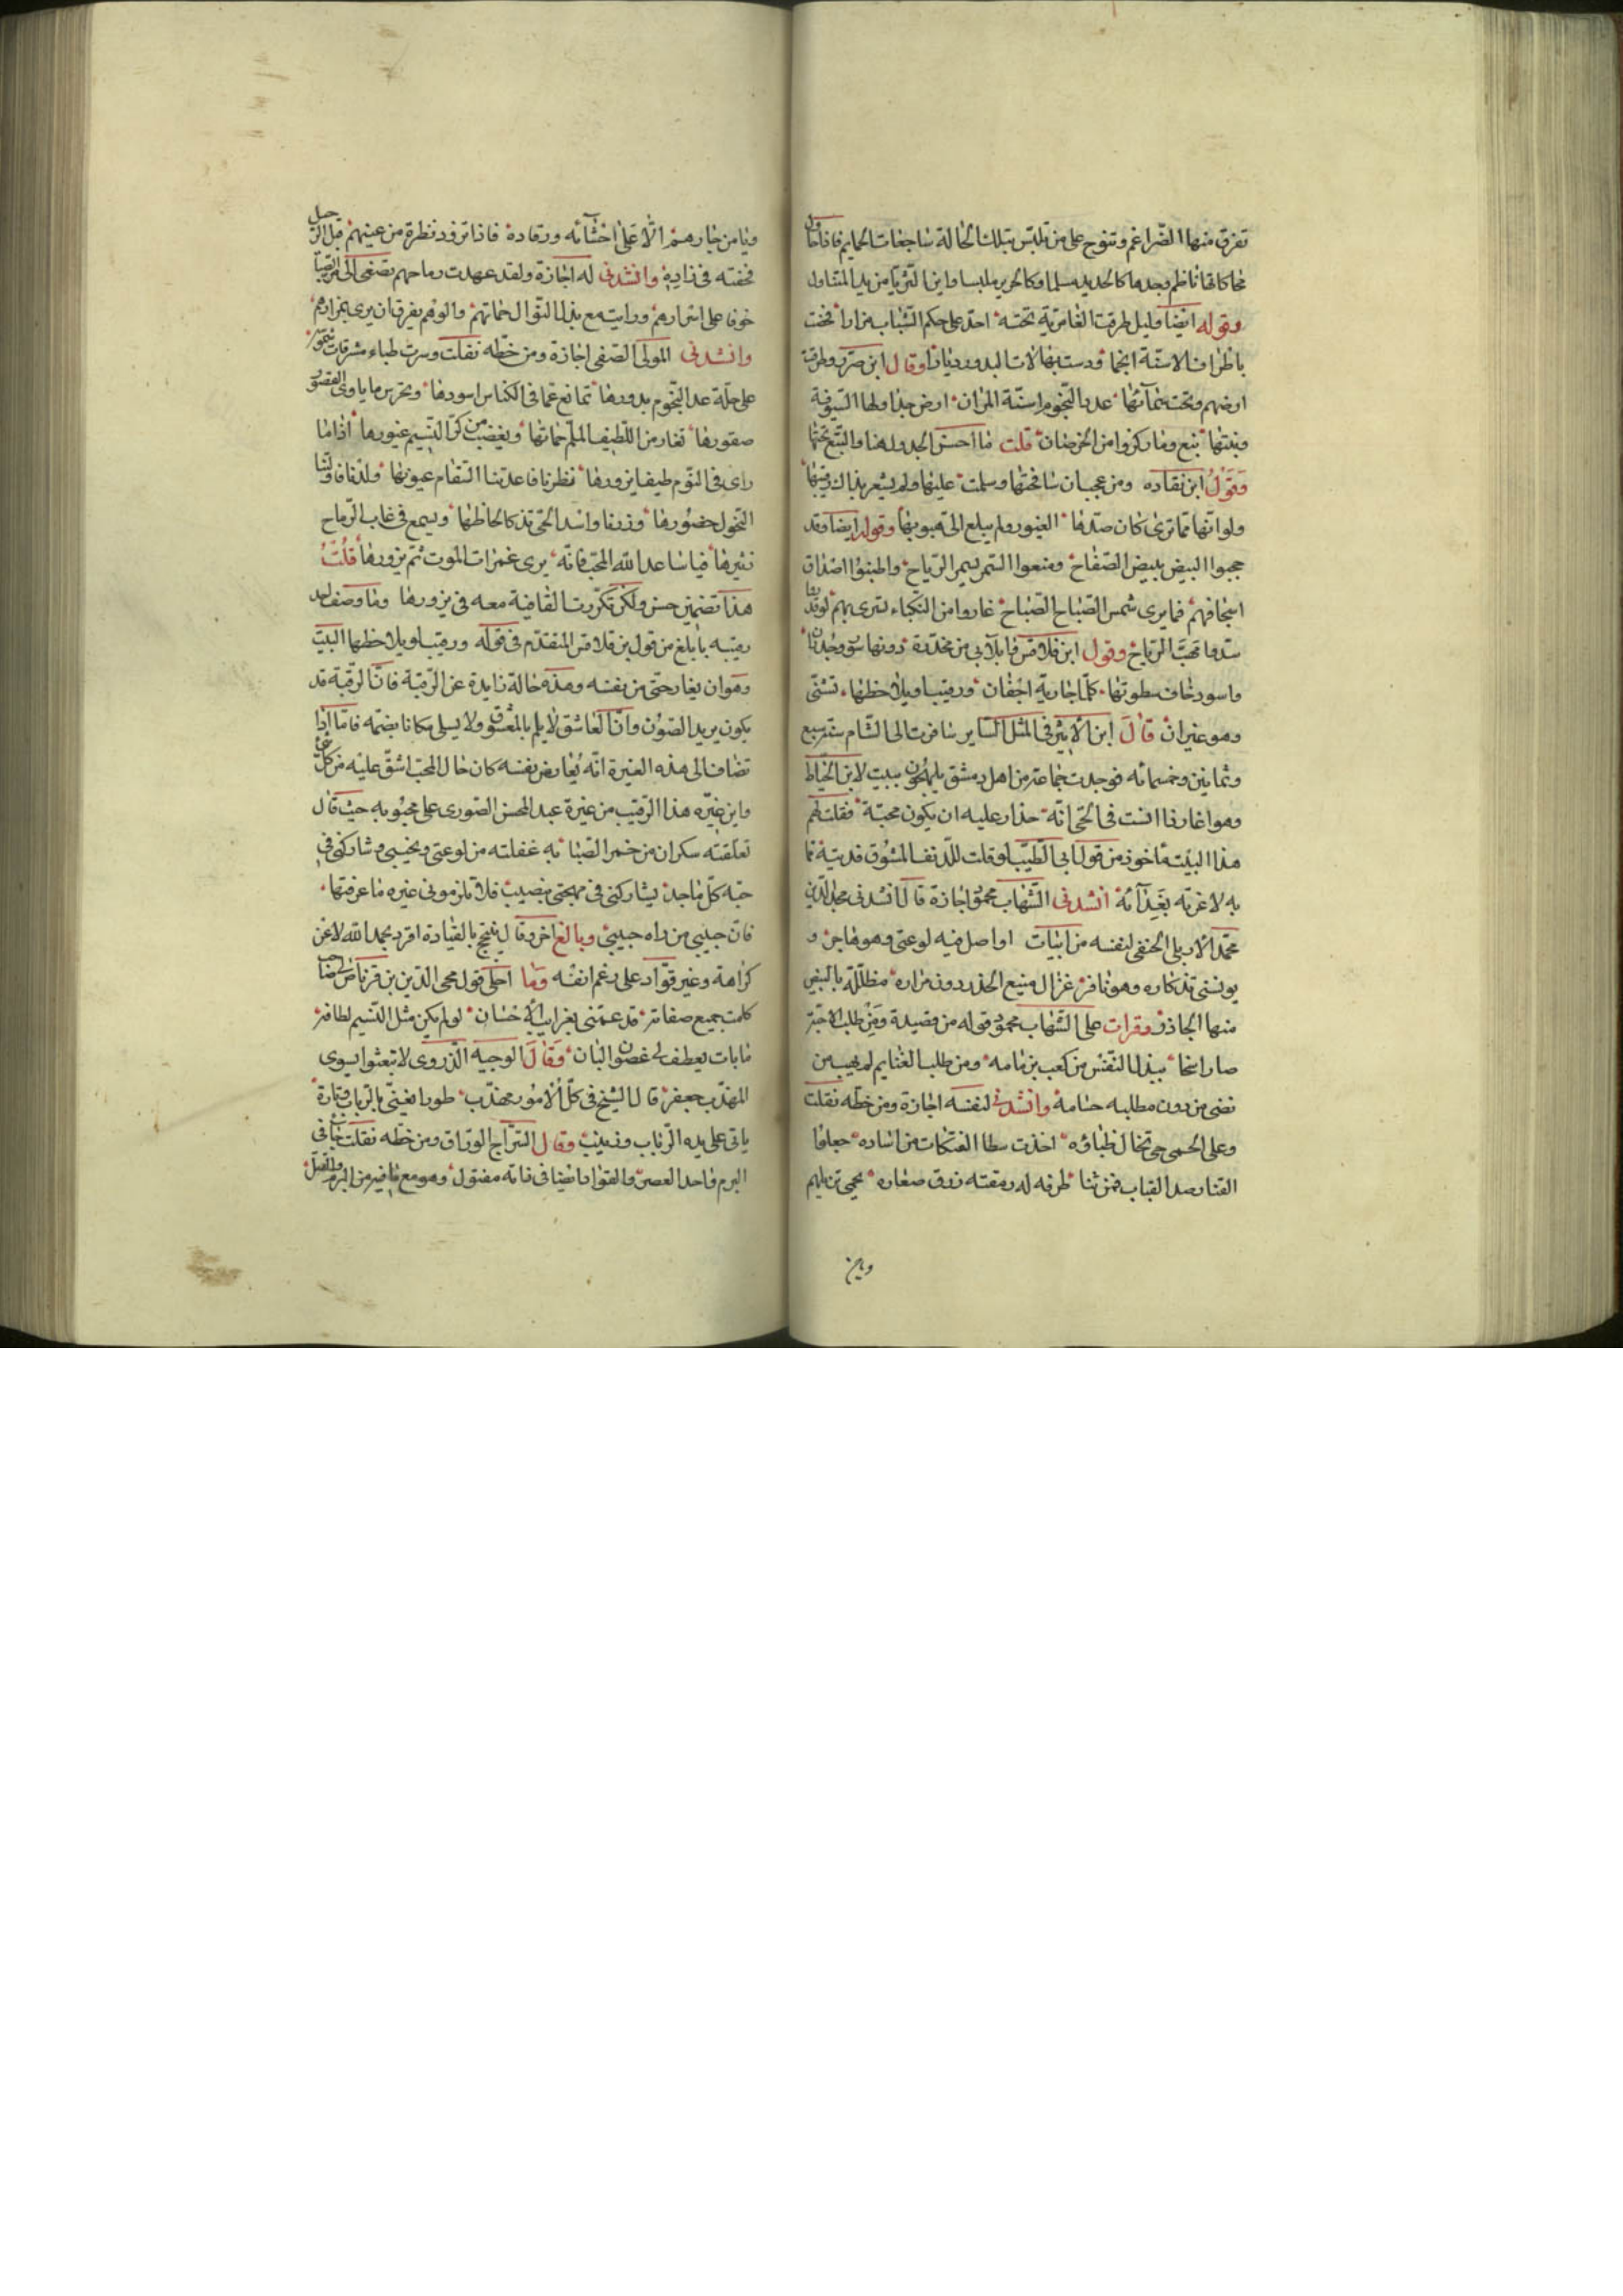 تفرق منها الضراغم وتنوح على من تلبس بتلك الحالة ساجعات الحمايم فاذا حاول
محاكاتها ناظم وجدها كالحديد مسلما وكالحرير ملبسا واين الثريا من يد المتناول
وقوله ايضا وليل طرقت العامرية تحته احد على حكم الشباب مزارا فخضت
باطراف الاسنة انجما ودست بهالات البدور ديارا وقال ابن صردر وطرقت
ارضهم وتحت سمآئها عدد النجوم اسنة المران ارض جداولها السيوف
ونبتها نبع وما ركزوا من الخرصان قلت ما احسن الجدول هنا والنبع تحتها
وقول ابن نقاده ومن عجب ان سافحتها وسلمت عليها ولم يشعر بذاك رقيبها
ولو انها مما ترى كان صدها الغيور ولم يبلغ الى هبوبها وقوله ايضا وقد
حجبوا البيض ببيض الصفاح ومنعوا السمر بسمر الرماح واطبقوا اصداف
اسجافهم فما يرى شمس الصباح الصباح غاروا من النكباء تسرى بهم لو قدروا
سدوا مهب الرياح وقول ابن قلاقس ما بلآبى من مخدرة دونها سور وجدران
واسود خاف سطوتها كلما جارية اجفان ورقيب او يلاحظها تشتى
وهو غيران قال ابن الاثير فى المثل الساير سافرت الى الشام سنة سبع
وثمانين وخمسمائه فوجدت جماعة من اهل دمشق يلهجون ببيت لابن الخياط
وهو اغار اذا انست فى الحى انة حذار عليه ان يكون محبة فقلت لهم
هذا البيت ماخوذ من قول ابى الطيب لو قلت للدنف المشوق فديته مما
به لاغرته بفدآئه انشدنى الشهاب محمود اجازة قال انشدنى مجد الدين
محمد الاربلى الحنفى لنفسه من ابيات اواصل فيه لوعتى وهو هاجر و
يونسنى تذكاره وهو نافر غزال منيع الخدر دون مزاره مظللة بالبيض
منها الجاذر وقرات على الشهاب محمود قوله من قصيدة ومن طلب الاحبة
صار اسخا ببذل النفس من كعب بن مامه ومن طلب الغنايم لم يهب من
نضى من دون مطلبه حسامه وانشدنى لنفسه اجازة ومن خطه نقلت
وعلى الحمى حى تخال ظباؤه اخذت سطا الفتكات من اساده جعلوا
القنا رصد القباب فمن ثنا طرفه له رمقته زرق صغاره يحمى نزيلهم
وين
ويامن جارهم الا على احشائه ورقاده فاذا تزود نظرة من عينهم قبل الرحيل
فحفته فى زاديه وانشدنى له اجازة ولقد عهدت رماحهم تصغى الى مر الصبا
خوفا على اسرارهم ورايته مع بذل النوال حماتهم والوهم يفرق ان يرى بمزارهم
وانشدنى المولى الصفى اجازة ومن خطه نقلت وسرب ظباء مشرقات شموسه
على حلة عد النجوم بدورها تمانع عما فى الكناس اسودها وتحرس ما ياوى القصور
صقورها تغار من اللطيف الملم حماتها ويغضب من كر النسيم غيورها اذا ما
راى فى النوم طيفا يزورها نظرنا فاعدتنا السقام عيونها ولذنا فاولتنا
النحول خصورها وزرنا واسد الحى تذكا الحاظها ويسمع فى غاب الرماح
زئيرها فيا ساعد الله المحب فانه يرى غمرات الموت ثم يزورها قلت
هذا تضمين حسن ولكن تكررت القافية معه فى يزورها وما وصف احد
رقيبه بابلغ من قول بن قلاقس المتقدم فى قوله ورقيب او يلاحظها البيت
وهو ان يغار حتى من نفسه وهذه حالة زايدة عن الرقبة فان الرقبة قد
يكون يريد الصون وان العاشق لا يلم بالمعشوق ولا يسلى مكانا يضمه فاما اذا
تضاف الى هذه الغيرة انه يغار من نفسه كان حال المحب اشق عليه من كل
واين غيرة هذا الرقيب من غيرة عبد المحسن الصورى على محبوبه حيث قال
تعلقته سكران من خمر الصبا به غفلته من لوعتى ونحيبى وشاركنى فى
حبه كل ماجد يشاركنى فى مهجتى بنصيب فلا تلزمونى غيره ما عرفتها
فان حبيبى من راه حبيبى وبالغ اخر وقال يتبجح بالقيادة اقرد بحمد الله لا عن
كراهة وغير قواد على رغم انفه وما احلى قول محى الدين بن قرناص
كملت جميع صفاته قد عمنى بغرايب الاحسان لو لم يكن مثل النسيم لطافة
ما بات يعطف لى غصون البان وقال الوجيه الذروى لا تبعثوا بسوى
المهذب جعفر فالشيخ فى كل الامور مهذب طورا يغنى بالرباب وتارة
ياتى على يده الرباب وزينب وقال السراج الوراق ومن خطه نقلت
البرم واحد العصر والقواد ايضا فى زمانه مفتول وهو مع